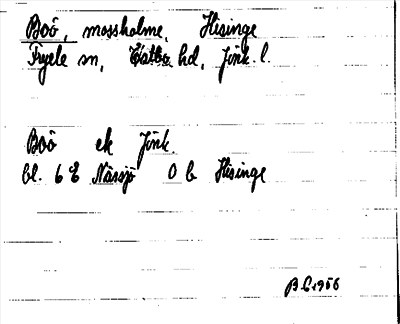 Boö, mossholme, Hisinge
Fryele sn, Östbo hd, Jönk. l.
Boö ek Jönk.
bl. 6 E Nässjö O b Hisinge
B E 1956